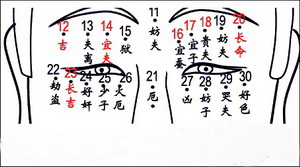 11 妨夫
12 吉
13 夫离
14 宜夫
15 狱
16 宜妾
17 宜子
18 贵夫
19 妨夫
20 长命
21 厄
22 劫盗
23 长吉
24 好奸
25 少子
26 灾厄
27 凶
28 妨子
29 哭夫
30 好色